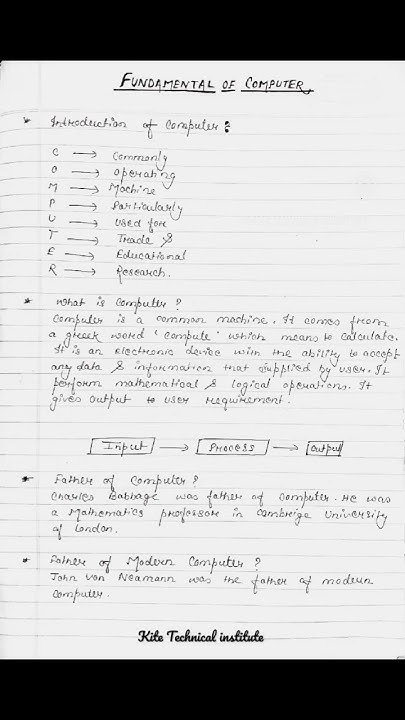 FUNDAMENTAL OF COMPUTER
Introduction of Computer:
C → Commonly
O → Operating
M → Machine
P → Particularly
U → Used for
T → Trade &
E → Educational
R → Research.
What is Computer?
Computer is a common machine. It comes from
a greek word 'compute' which means to calculate.
It is an electronic device with the ability to accept
any data & information that supplied by user. It
perform mathematical & logical operations. It
gives output to user requirement.
Input → PROCESS → Output
Father of Computer?
Charles Babbage was father of computer. He was
a Mathematics professor in Cambrige University
of London.
Father of Modern Computer?
John Von Neamann was the father of modern
computer.
Kite Technical institute